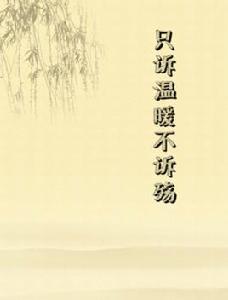 只诉温暖不诉殇